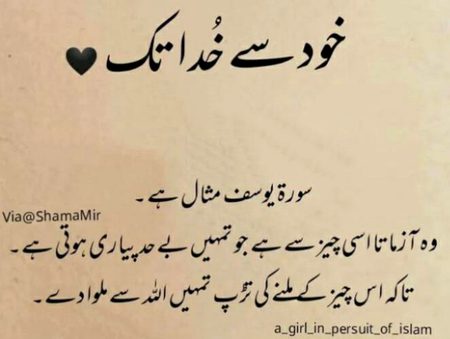 خود سے خُدا تک 🖤
سورۃ یوسف مثال ہے ۔
Via@ShamaMir
وہ آزماتا اسی چیز سے ہے جو تمہیں بے حد پیاری ہوتی ہے ۔
تاکہ اس چیز کے ملنے کی تڑپ تمہیں اللہ سے ملوا دے ۔
a_girl_in_persuit_of_islam